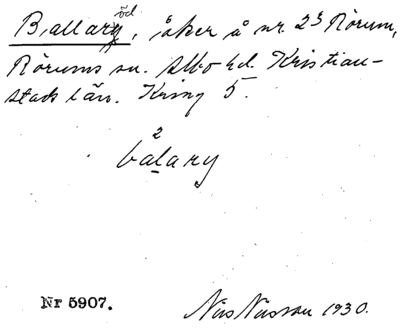 Ballaröd, åker å nr. 2³ Rörum,
Rörums sn. Albo hd. Kristian-
stads län. Kring 5.
2
balary
Nr 5907.
Nils Nilsson 1930.